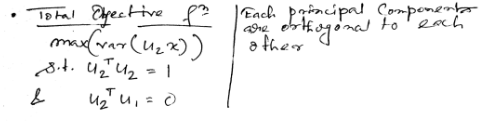 • Total Objective fⁿ
max(var(u₂x))
s.t. u₂ᵀu₂ = 1
& u₂ᵀu₁ = 0
Each principal components
are orthogonal to each
other